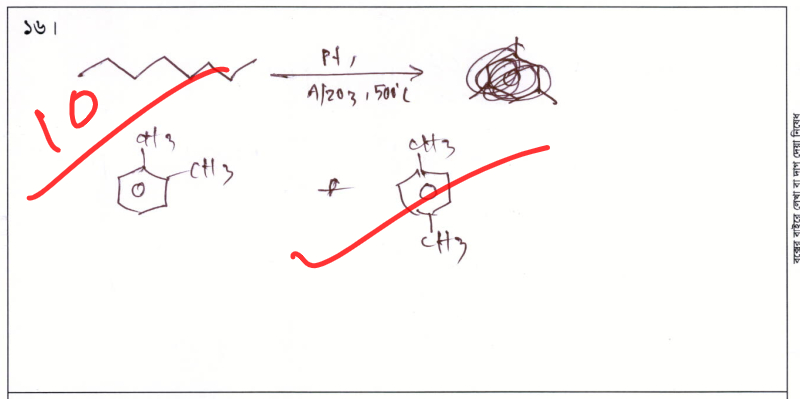 ১৬।
Pt,
Al2O3, 500°C
10
CH3
CH3
+
CH3
CH3
বক্সের বাইরে লেখা বা দাগ দেয়া নিষেধ